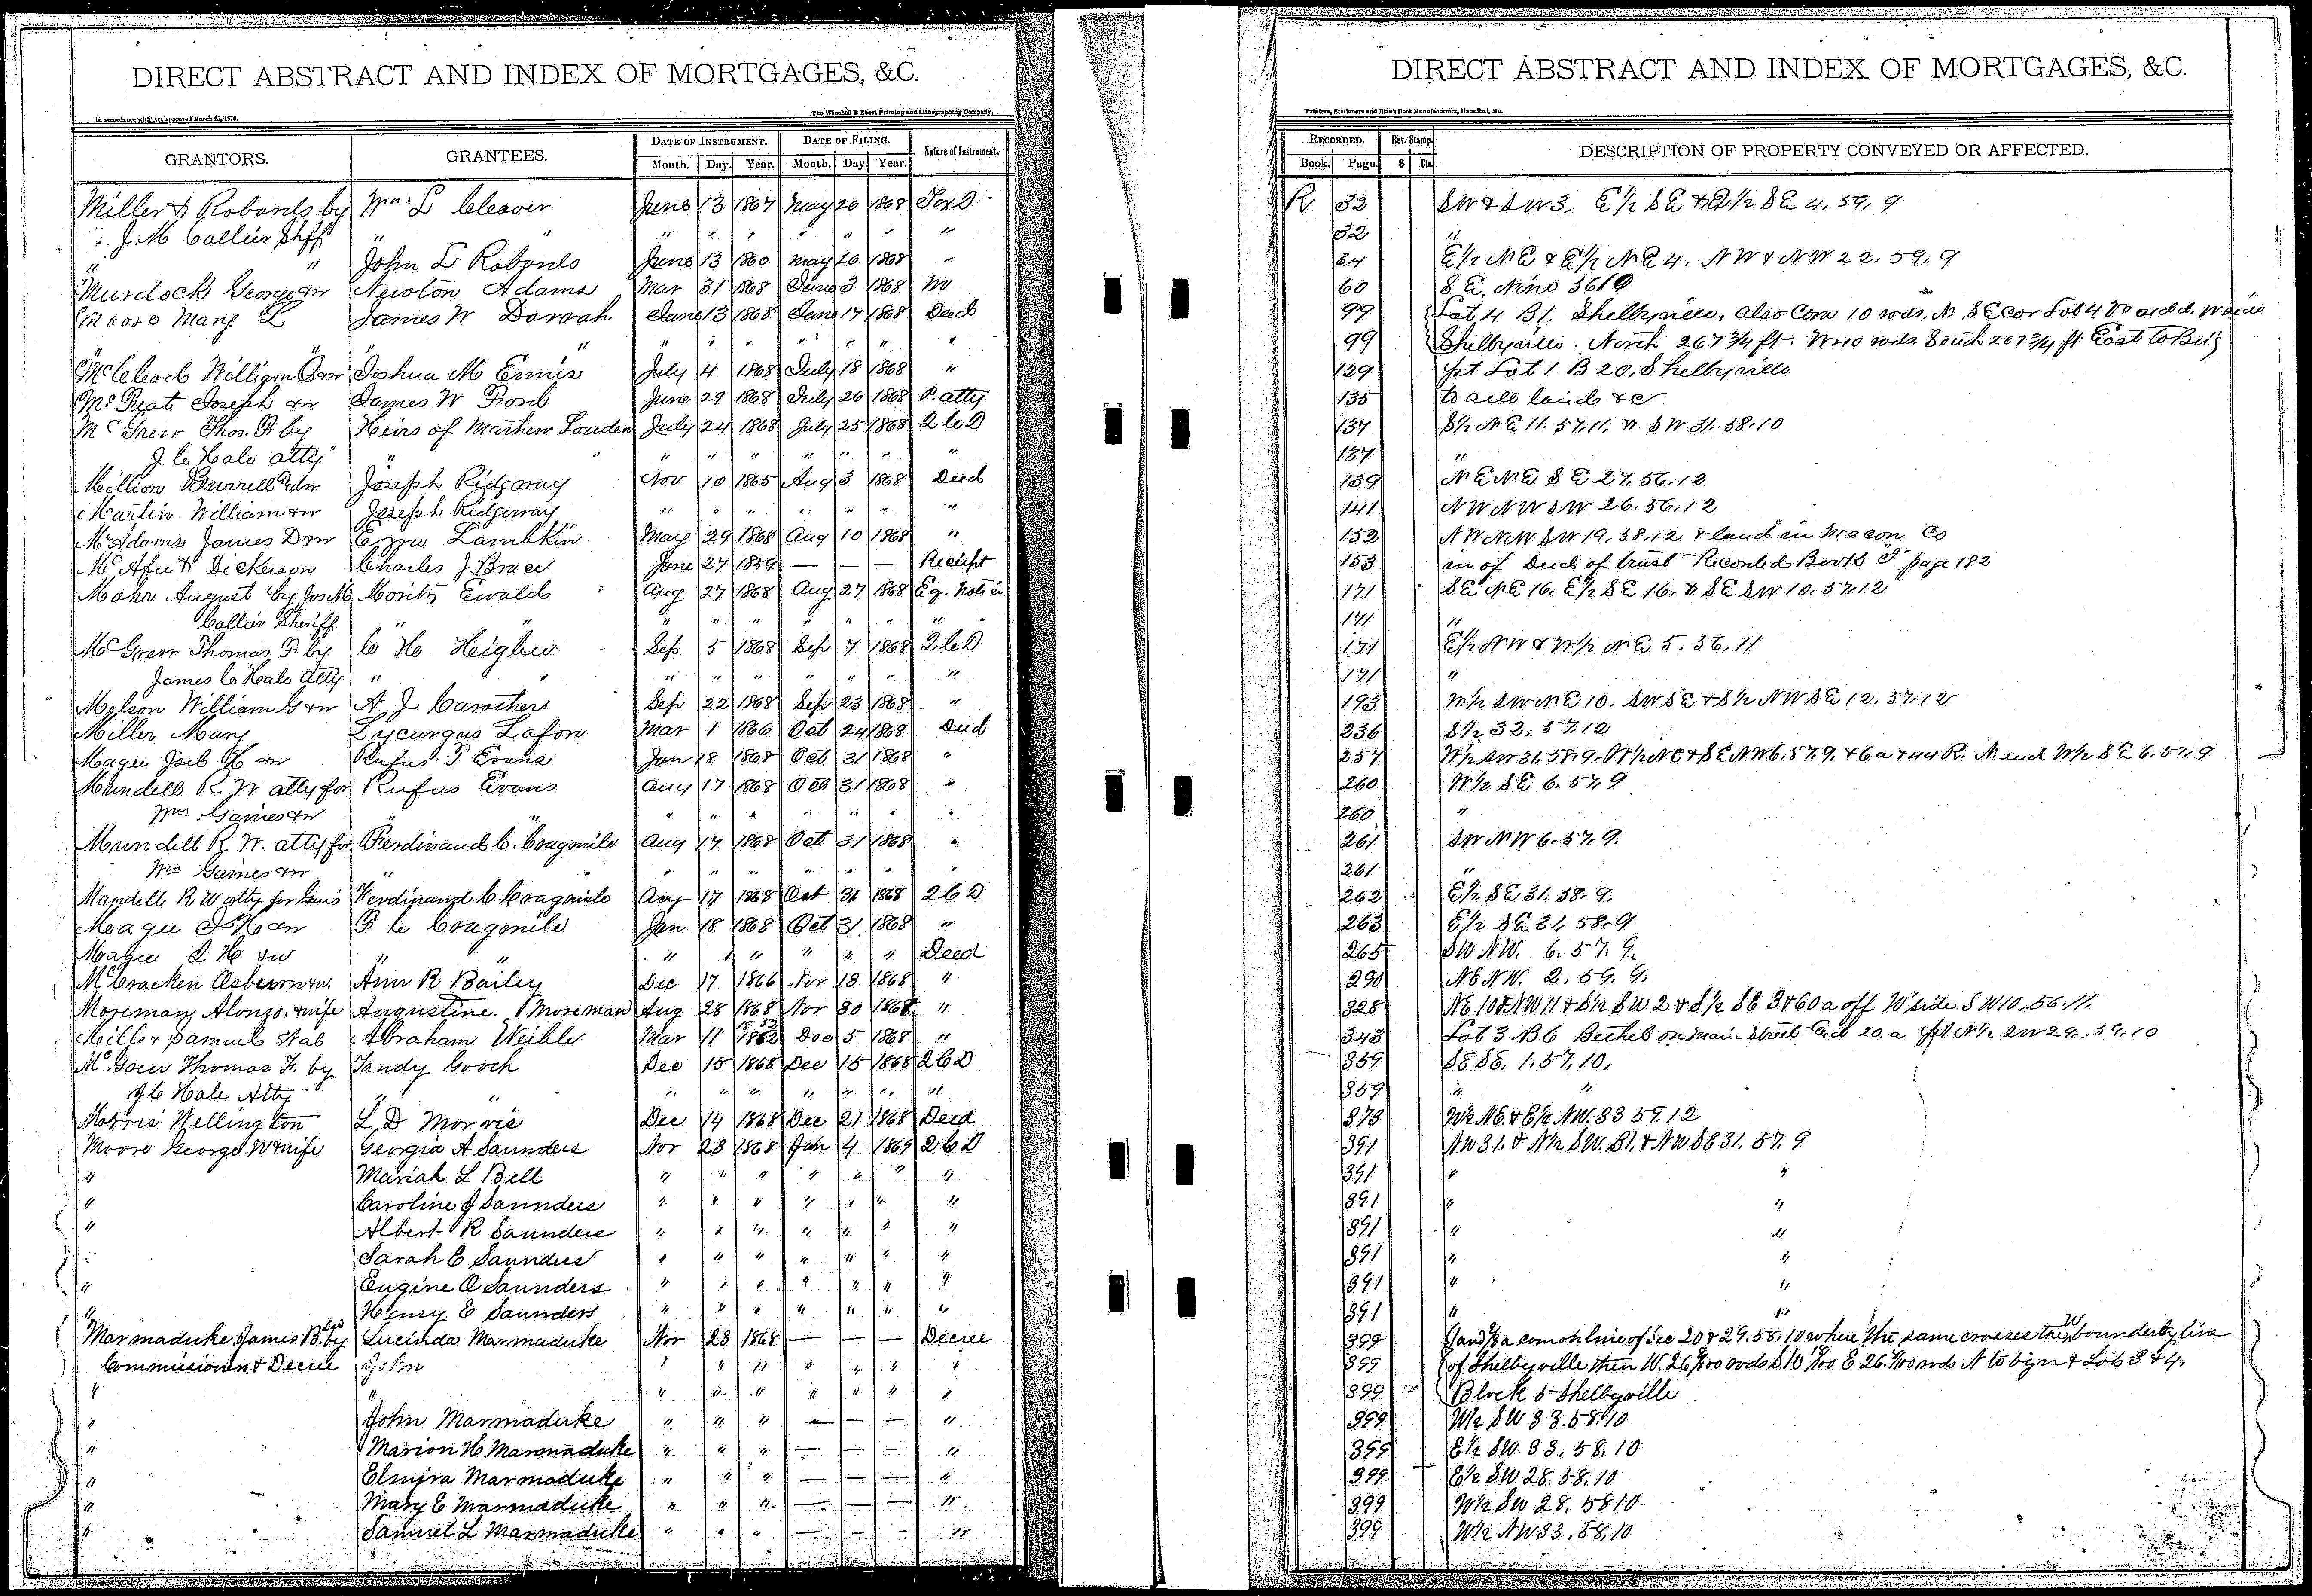 DIRECT ABSTRACT AND INDEX OF MORTGAGES, &C.
In accordance with Act approved March 25, 1870.
The Winchell & Ebert Printing and Lithographing Company,
GRANTORS. GRANTEES. DATE OF INSTRUMENT. DATE OF FILING. Nature of Instrument.
Month. Day. Year. Month. Day. Year.
Miller & Robards by Wm. L Cleaver June 13 1867 May 20 1868
J. M Collier Shff " " " " " " " " "
" " John L Robards June 13 1860 May 26 1868 "
Murdock George &w Newton Adams Mar 31 1868 June 3 1868
Mary L James W Darrah June 13 1868 June 17 1868 Deed
" " " " " " " "
McCleod William &w Joshua M Ennis July 4 1868 July 18 1868 "
Joseph &w James W Ford June 29 1868 July 26 1868 P. atty
Thos. F by Heirs of Mathew Louden July 24 1868 July 25 1868 Q C D
J C Hale atty " " " " " " " " "
Million Burrell &w Joseph Ridgway Nov 10 1865 Aug 3 1868 Deed
Martin William &w Joseph Ridgeway " " " " " " "
McAdams James D &w Lambkin May 29 1868 Aug 10 1868 "
McAfee & Dickerson Charles J Brace June 27 1859 — — — Receipt
Mohr August by Jos M Moritz Ewald Aug 27 1868 Aug 27 1868 Eq. Notice
Collier Sheriff " " " " " " " " "
McGrew Thomas F by C H Heighew Sep 5 1868 Sep 7 1868 Q C D
James C Hale Atty " " " " " " " " "
Melson William G &w A J Carothers Sep 22 1868 Sep 23 1868 "
Miller Mary Lycurgus Lafon Mar 1 1866 Oct 24 1868 Deed
Magee Joel H &w Rufus F Evans Jan 18 1868 Oct 31 1868 "
Mundell R W atty for Rufus Evans Aug 17 1868 Oct 31 1868 "
Wm Gaines &w " " " " " " " "
Mundell R. W. atty for Ferdinand C. Cragmile Aug 17 1868 Oct 31 1868 "
Wm Gaines &w " " " " " " " "
Mundell R W atty for Ferdinand C Cragmile Aug 17 1868 Oct 31 1868 Q C D
Magee J H &w F C Cragmile Jan 18 1868 Oct 31 1868 "
Magee J H &w " " " " " " " " Deed
McCracken Osburn &w. Ann R Bailey Dec 17 1866 Nov 18 1868 "
Moseman Alonzo. & wife Augustine. Moseman Aug 28 1868 Nov 30 1868 "
Miller Samuel Abraham Weible Mar 11 1852 Dec 5 1868 "
McGrew Thomas F. by Tandy Gooch Dec 15 1868 Dec 15 1868 Q C D
J C Hale Atty " " " " " " " " "
Morris Wellington L, D Morris Dec 14 1868 Dec 21 1868 Deed
Moore George W & wife Georgia A Saunders Nov 23 1868 Jan 4 1869 Q C D
" Mariah L Bell " " " " " " "
" Caroline J Saunders " " " " " " "
" Albert R Saunders " " " " " " "
" Sarah E Saunders " " " " " " "
" Eugine O Saunders " " " " " " "
" Henry E Saunders " " " " " " "
Marmaduke James B. by Lucinda Marmaduke Nov 23 1868 — — — Decree
Commissioners & Decree " " " " " " "
" " " " " " " " "
" John Marmaduke " " " — — — "
" Marion H Marmaduke " " " — — — "
" Elmira Marmaduke " " " — — — "
" Mary E Marmaduke " " " — — — "
" Samuel L Marmaduke " " " — — — "
DIRECT ABSTRACT AND INDEX OF MORTGAGES, &C.
Printers, Stationers and Blank Book Manufacturers, Hannibal, Mo.
RECORDED. Rev. Stamp. DESCRIPTION OF PROPERTY CONVEYED OR AFFECTED.
Book. Page. $ Cts.
R 32 SW & SW 3. E 1/2 SE & E 1/2 SE 4, 59, 9
32 "
34 E 1/2 NE & E 1/2 NE 4. NW & NW 22. 59, 9
60
99 Lot 4 B 1. Shelbyville, also Com 10 rods. N. SE cor Lot 4
99 Shelbyville. North 267 3/4 ft. W 10 rods South 267 3/4 ft East to Beg
129 pt Lot 1 B 20, Shelbyville
135 to sell land &c
137 S 1/2 NE 11. 57, 11. & SW 31. 58. 10
137 "
139 NE NE SE 27. 56. 12
141 NW NW SW 26. 56, 12
152 NW NW SW 19. 58. 12 & land in Macon Co
153 in of Deed of trust Recorded Book "J" page 182
171 SE NE 16. E 1/2 SE 16. & SE SW 10. 57. 12
171 "
171 E 1/2 NW & W 1/2 NE 5. 56. 11
171 "
193 W 1/2 SW NE 10. SW SE & S 1/2 NW SE 12. 57. 12
236 S 1/2 32. 57. 12
257 W 1/2 SW 31. 58. 9. W 1/2 NE & SE NW 6. 57. 9. & 6 a & 44 R. N. end W 1/2 SE 6. 57. 9
260 W 1/2 SE 6. 57. 9
260 "
261 SW NW 6. 57. 9.
261 "
262 E 1/2 SE 31. 58. 9.
263 E 1/2 SE 31. 58. 9
265 SW NW. 6. 57. 9.
290 NE NW. 2. 59. 9.
328 NE 10 & NW 11 & S 1/2 SW 2 & S 1/2 SE 3 & 60 a off W side SW 10. 56. 11.
343 Lot 3 B 6 Bethel on Main Street 20. a pt N 1/2 SW 29. 59. 10
359 SE SE. 1. 57. 10.
359 " "
373 W 1/2 NE. & E 1/2 NW. 33 59. 12
391 NW 31. & N 1/2 SW. 31. & NW SE 31. 57. 9
391 " "
391 " "
391 " "
391 " "
391 " "
391 " "
399 com on line of Sec 20 & 29. 58. 10 where the same crosses the W bounderby line
399 of Shelbyville then W. 26 rods S 10 E 26. rods N to bign & Lots 3 & 4.
399 Block 5 Shelbyville
399 W 1/2 SW 33. 58. 10
399 E 1/2 SW 33. 58. 10
399 E 1/2 SW 28. 58. 10
399 W 1/2 SW 28. 58 10
399 W 1/2 NW 33. 58. 10